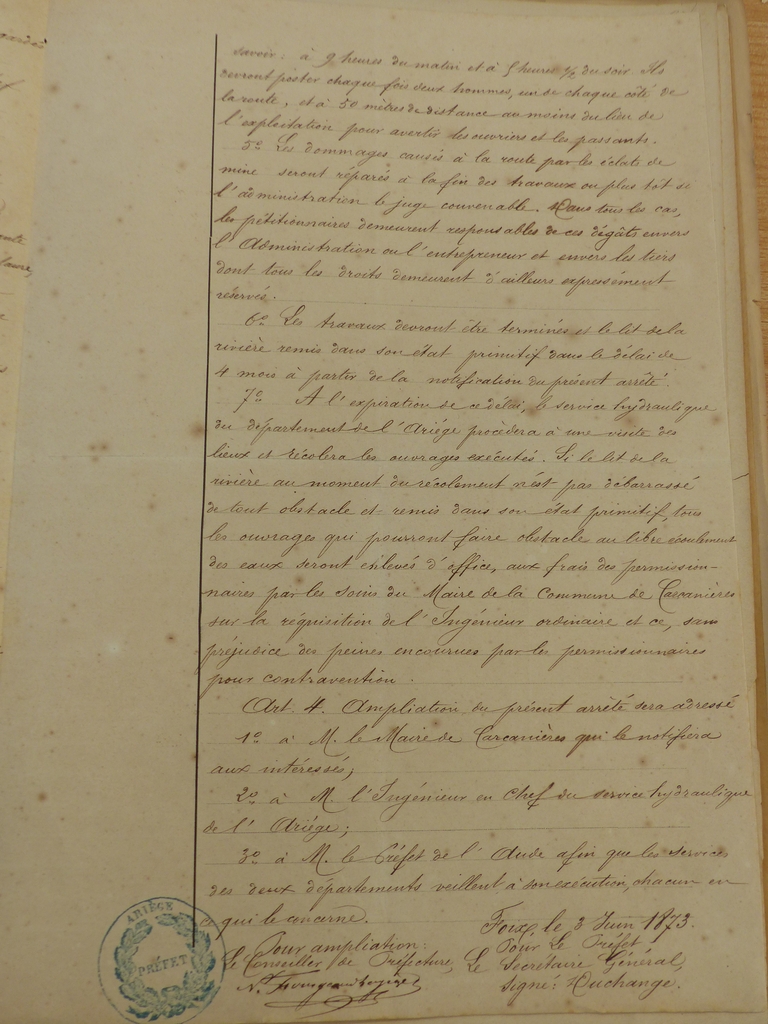 savoir : à 9 heures du matin et à 5 heures 1/2 du soir. Ils
devront poster chaque fois deux hommes, un de chaque côté de
la route, et à 50 mètres de distance au moins du lieu de
l'exploitation pour avertir les ouvriers et les passants.
5º Les dommages causés à la route par les éclats de
mine seront réparés à la fin des travaux ou plus tôt si
l'administration le juge convenable. Dans tous les cas,
les pétitionnaires demeurent responsables de ces dégâts envers
l'Administration ou l'entrepreneur et envers les tiers
dont tous les droits demeurent d'ailleurs expressément
réservés.
6º Les travaux devront être terminés et le lit de la
rivière remis dans son état primitif dans le délai de
4 mois à partir de la notification du présent arrêté.
7º A l'expiration de ce délai, le service hydraulique
du département de l'Ariége procèdera à une visite des
lieux et récolera les ouvrages exécutés. Si le lit de la
rivière au moment du récolement n'est pas débarrassé
de tout obstacle et remis dans son état primitif, tous
les ouvrages qui pourront faire obstacle au libre écoulement
des eaux seront enlevés d'office, aux frais des permission-
naires par les soins du Maire de la Commune de Carcanières
sur la réquisition de l'Ingénieur ordinaire et ce, sans
préjudice des peines encourues par les permissionnaires
pour contravention.
Art. 4. Ampliation du présent arrêté sera adressé
1º à M. le Maire de Carcanières qui le notifiera
aux intéressés;
2º à M. l'Ingénieur en Chef du service hydraulique
de l'Ariége;
3º à M. le Préfet de l'Aude afin que les services
des deux départements veillent à son exécution, chacun en
ce qui le concerne.
Foix, le 3 Juin 1873.
Pour ampliation:
Le Conseiller de Préfecture,
Pour Le Préfet,
Le Secrétaire Général,
Signé: Duchange.
ARIÉGE
PRÉFET